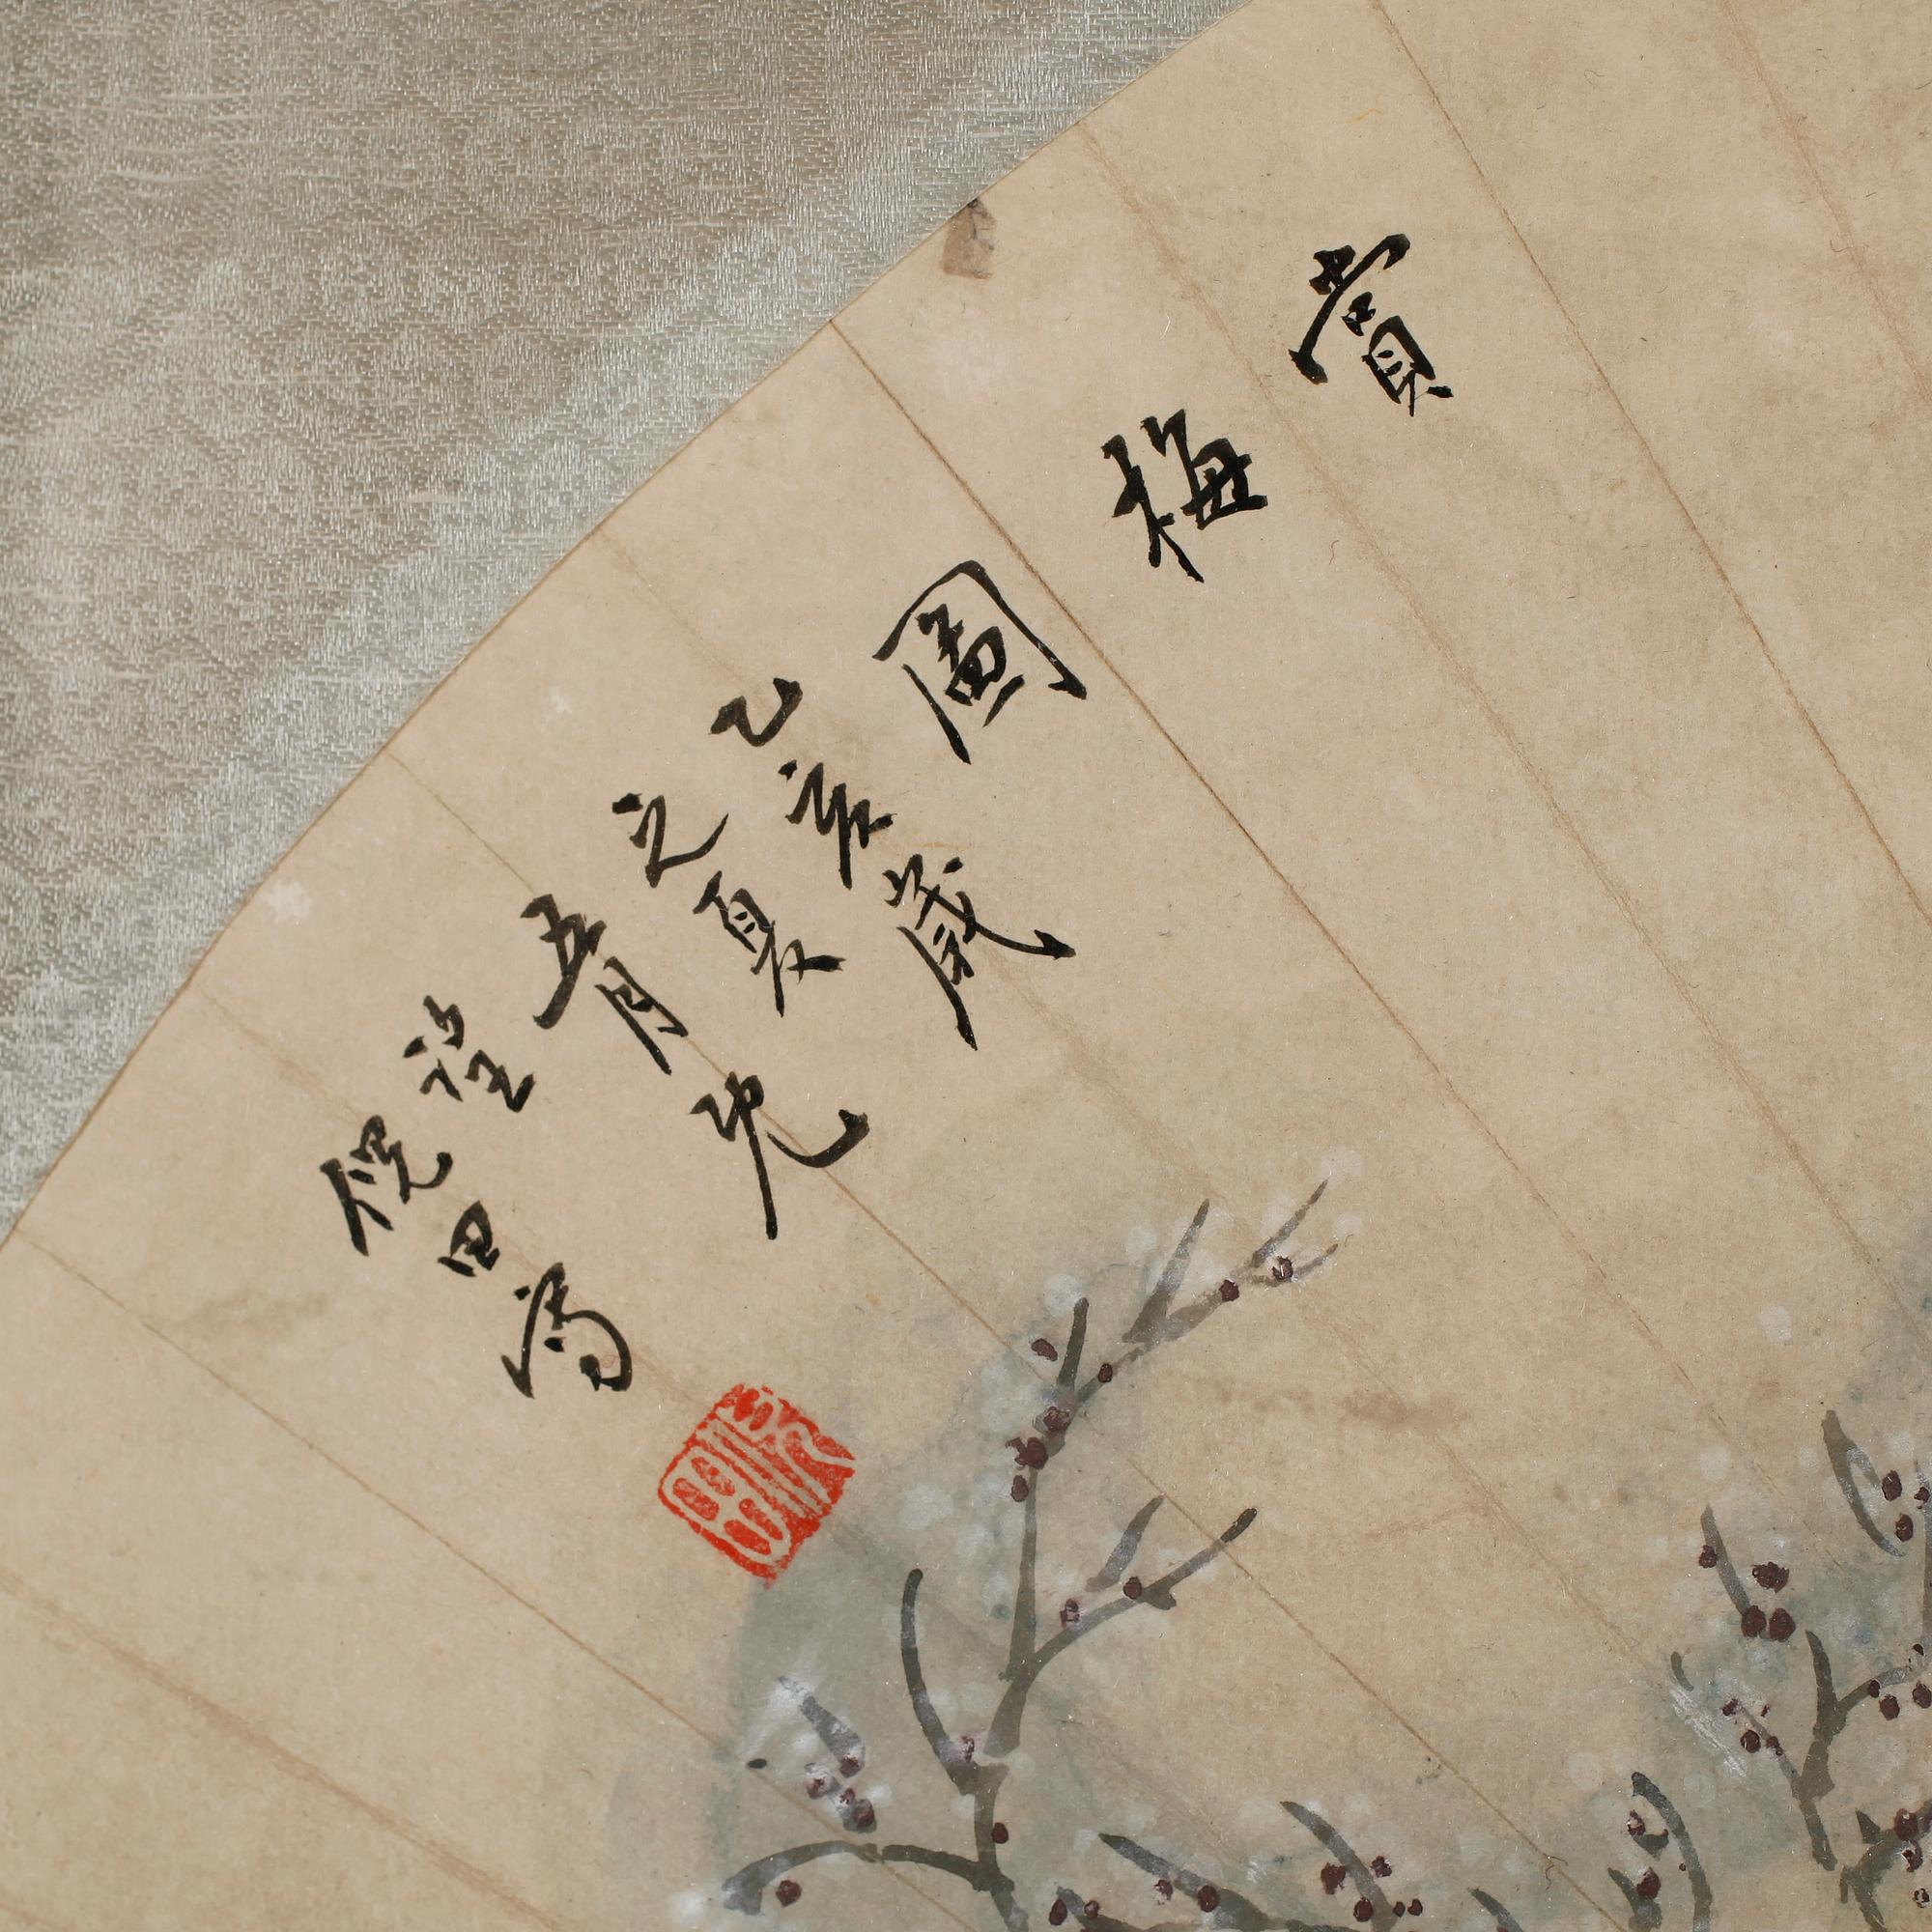 賞
梅
圖
己亥歲
之夏
五月既
望
倪田寫